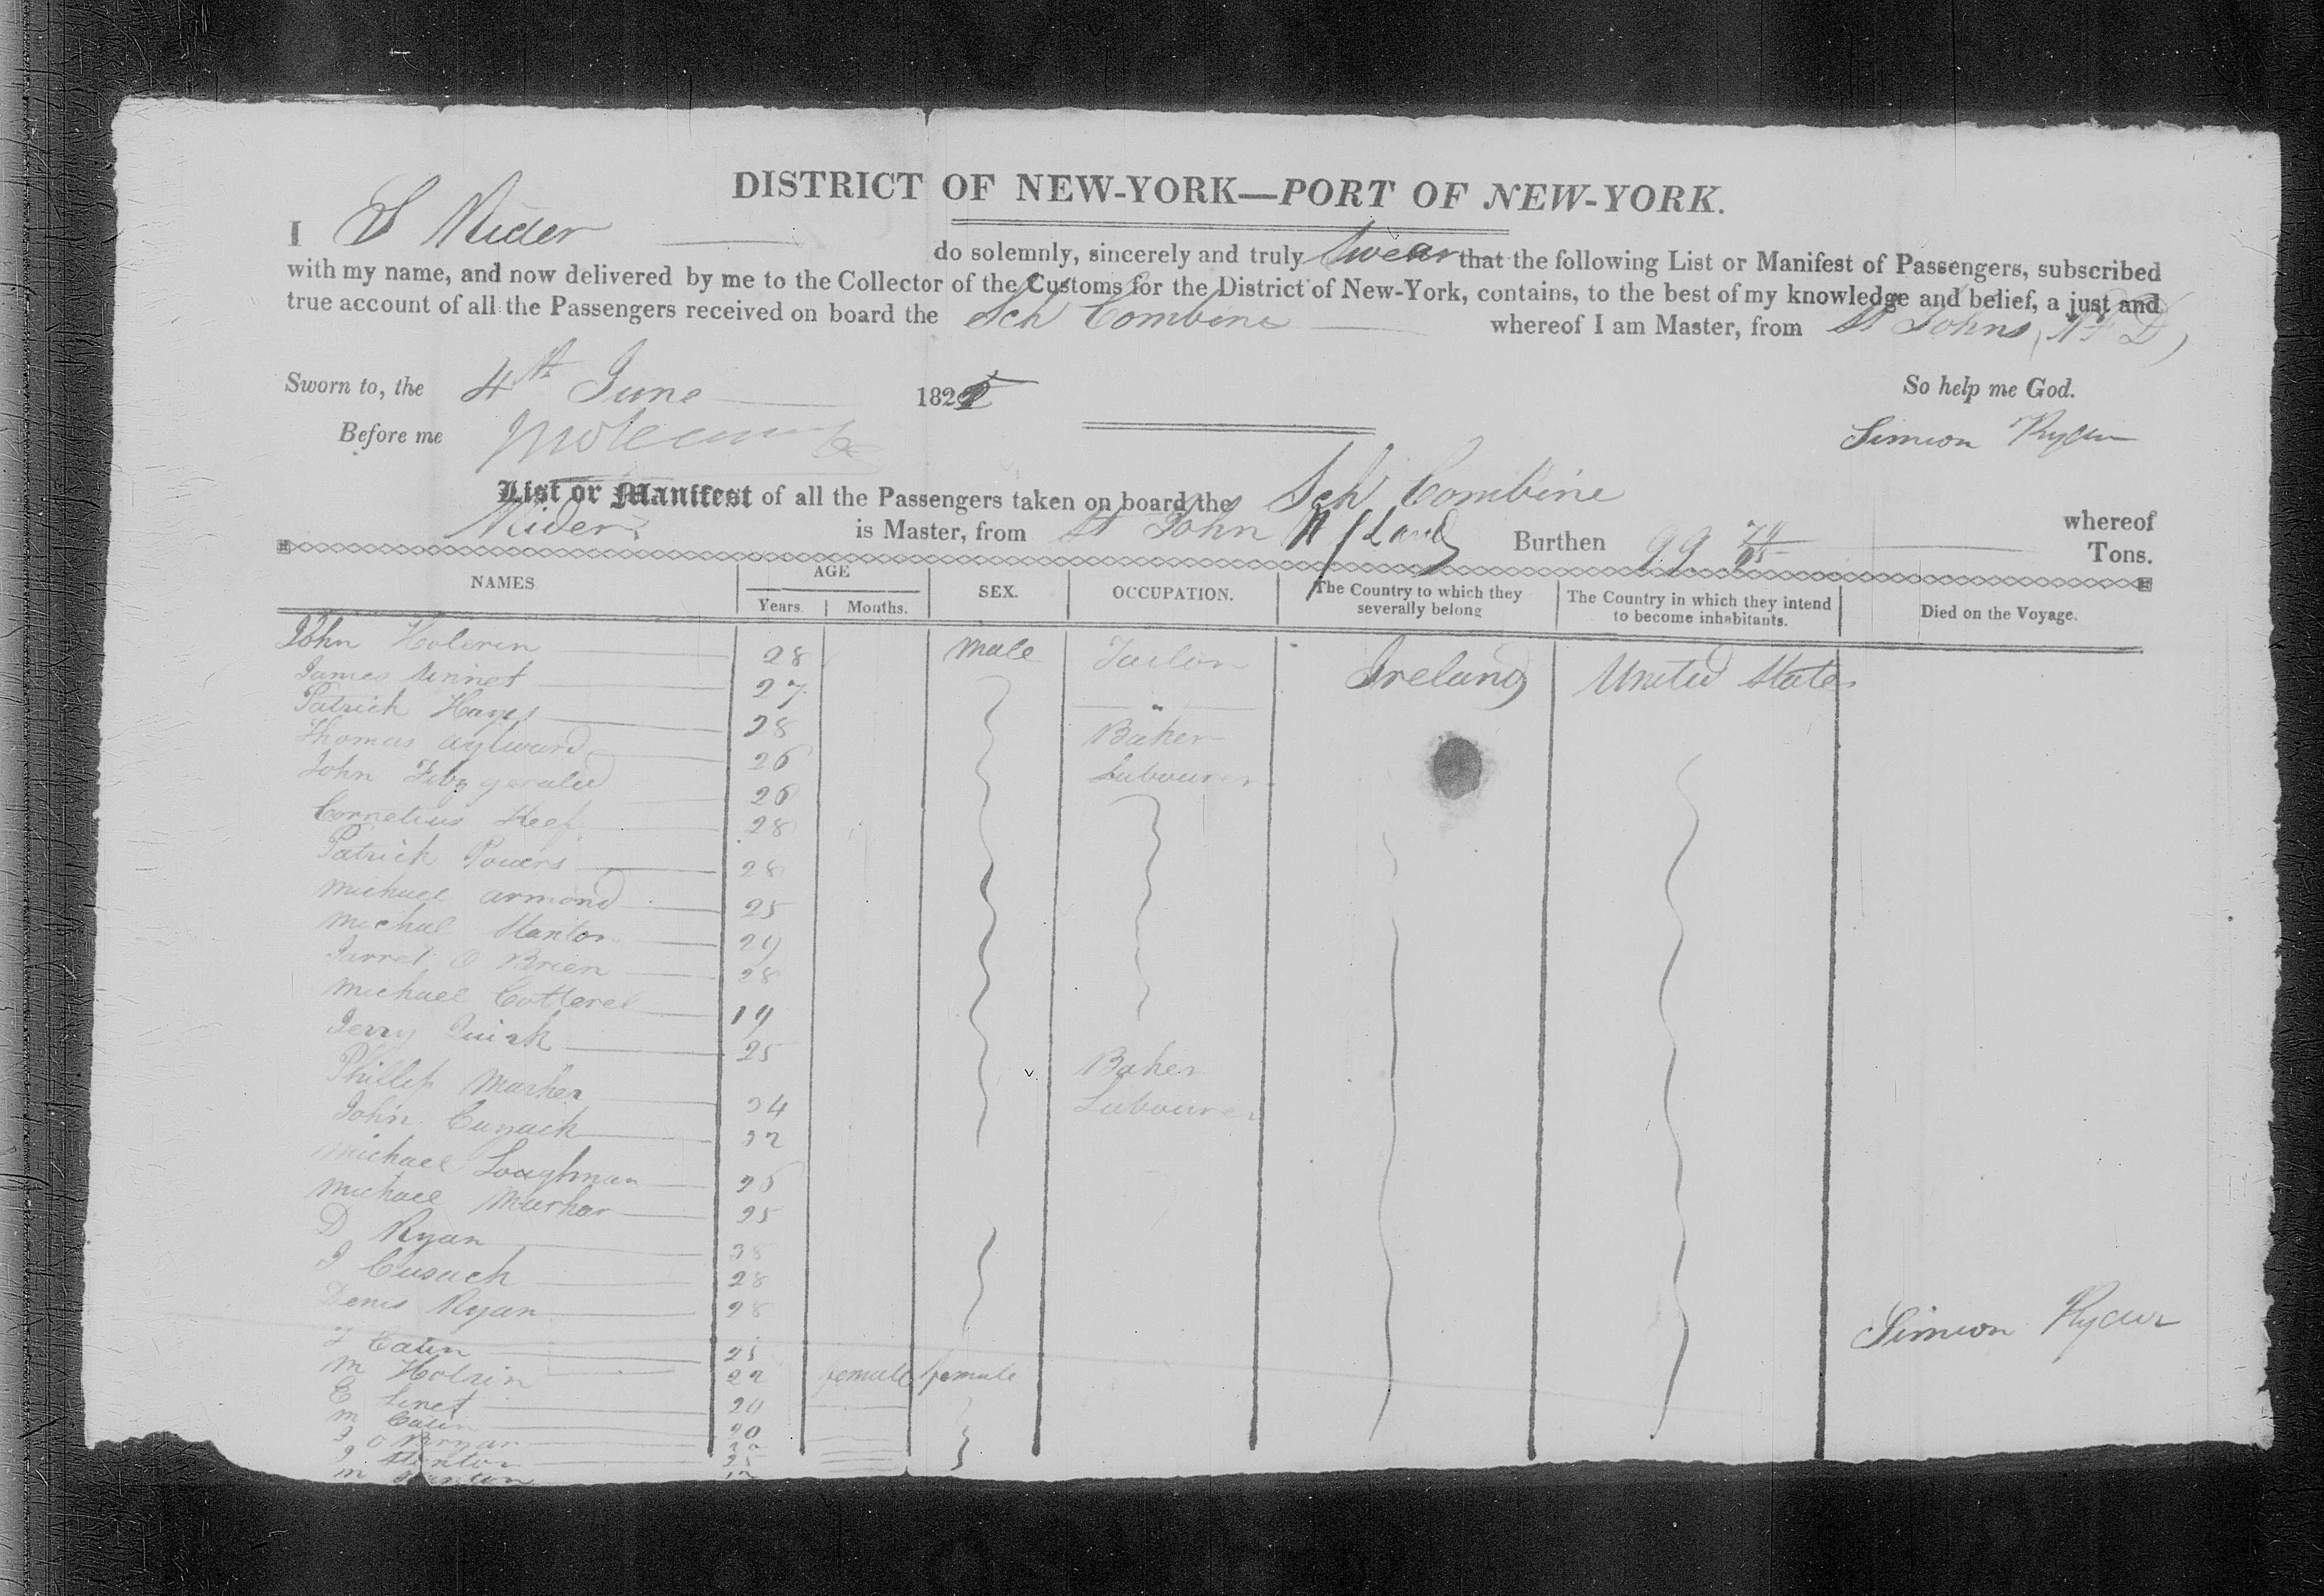 DISTRICT OF NEW-YORK—PORT OF NEW-YORK.
I S Rider do solemnly, sincerely and truly Swear that the following List or Manifest of Passengers, subscribed
with my name, and now delivered by me to the Collector of the Customs for the District of New-York, contains, to the best of my knowledge and belief, a just and
true account of all the Passengers received on board the Sch Combine whereof I am Master, from St Johns, N F D
Sworn to, the 4th June 182 So help me God.
Before me Simeon Ryder
List or Manifest of all the Passengers taken on board the Sch Combine whereof
Rider is Master, from St John N f Land Burthen 99 Tons.
NAMES AGE SEX. OCCUPATION. The Country to which they severally belong The Country in which they intend to become inhabitants. Died on the Voyage.
Years. Months.
John Holerin 28 male Tailor Ireland United States
James Sinnet 27 "
Patrick Hayes 28 Baker
Thomas Aylward 26 Labourer
John Fitzgerald 26
Cornelius Keef 28
Patrick Powers 28
Michael Armond 25
Michal Stanton 29
Jarrat O Brien 28
Michael Cotterel 19
Jerry Quirk 25 Baker
Phillip Marher 34 Labourer
John Cusack 32
Michael Loughman 26
Michael Marhar 25
D Ryan 38
J Cusack 28
Denis Ryan 28 Simeon Ryder
Catin 25
M Holrin 22 female female
E Sinet 20
M Catin 20
J O Bryan
J Stanton 25
M